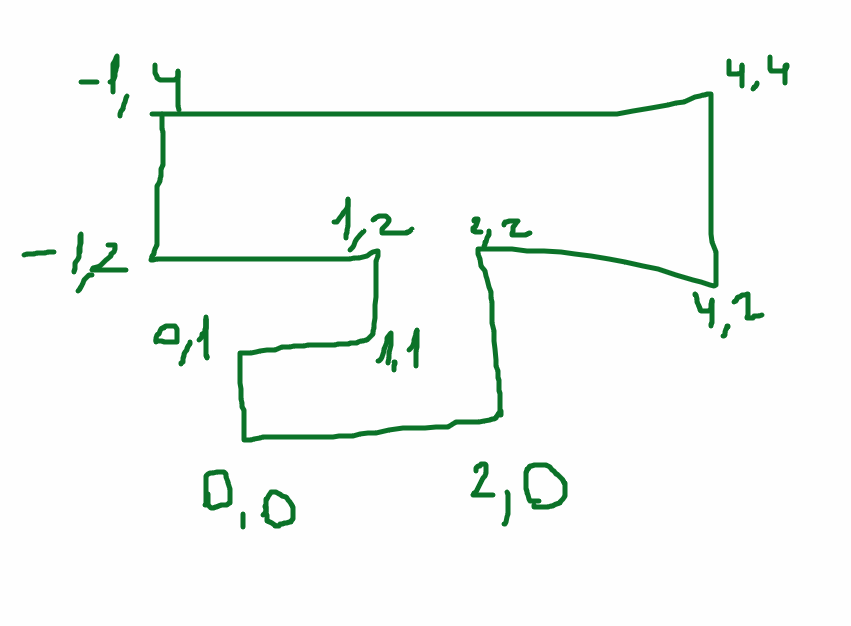 -1,4
4,4
-1,2
1,2
2,2
4,2
0,1
1,1
0,0
2,0